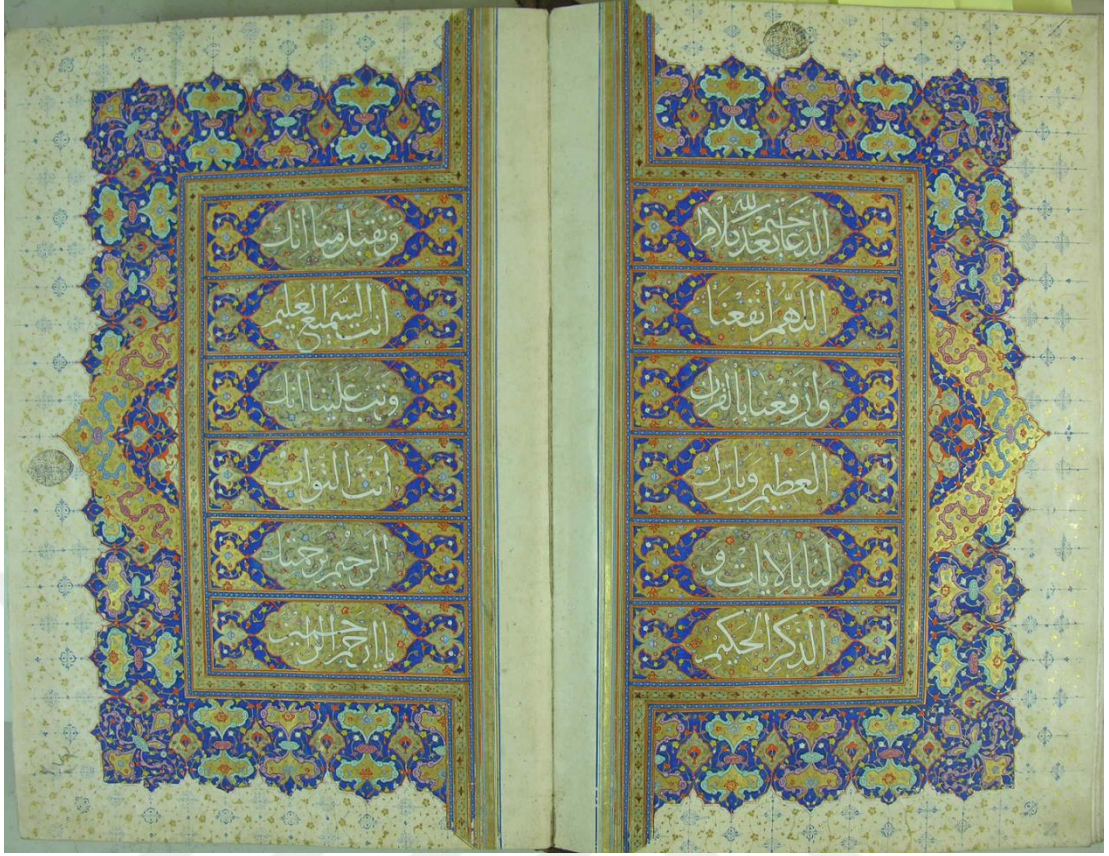 الدعا بعد ختم كلام الله
اللهم انفعنا
وارفعنا بالقران
العظيم وبارك
لنا بالايات و
الذكر الحكيم
وتقبل منا انك
انت السَّميع العليم
وتب علينا انك
انت التواب
الرحيم برحمتك
يا ارحم الراحمين